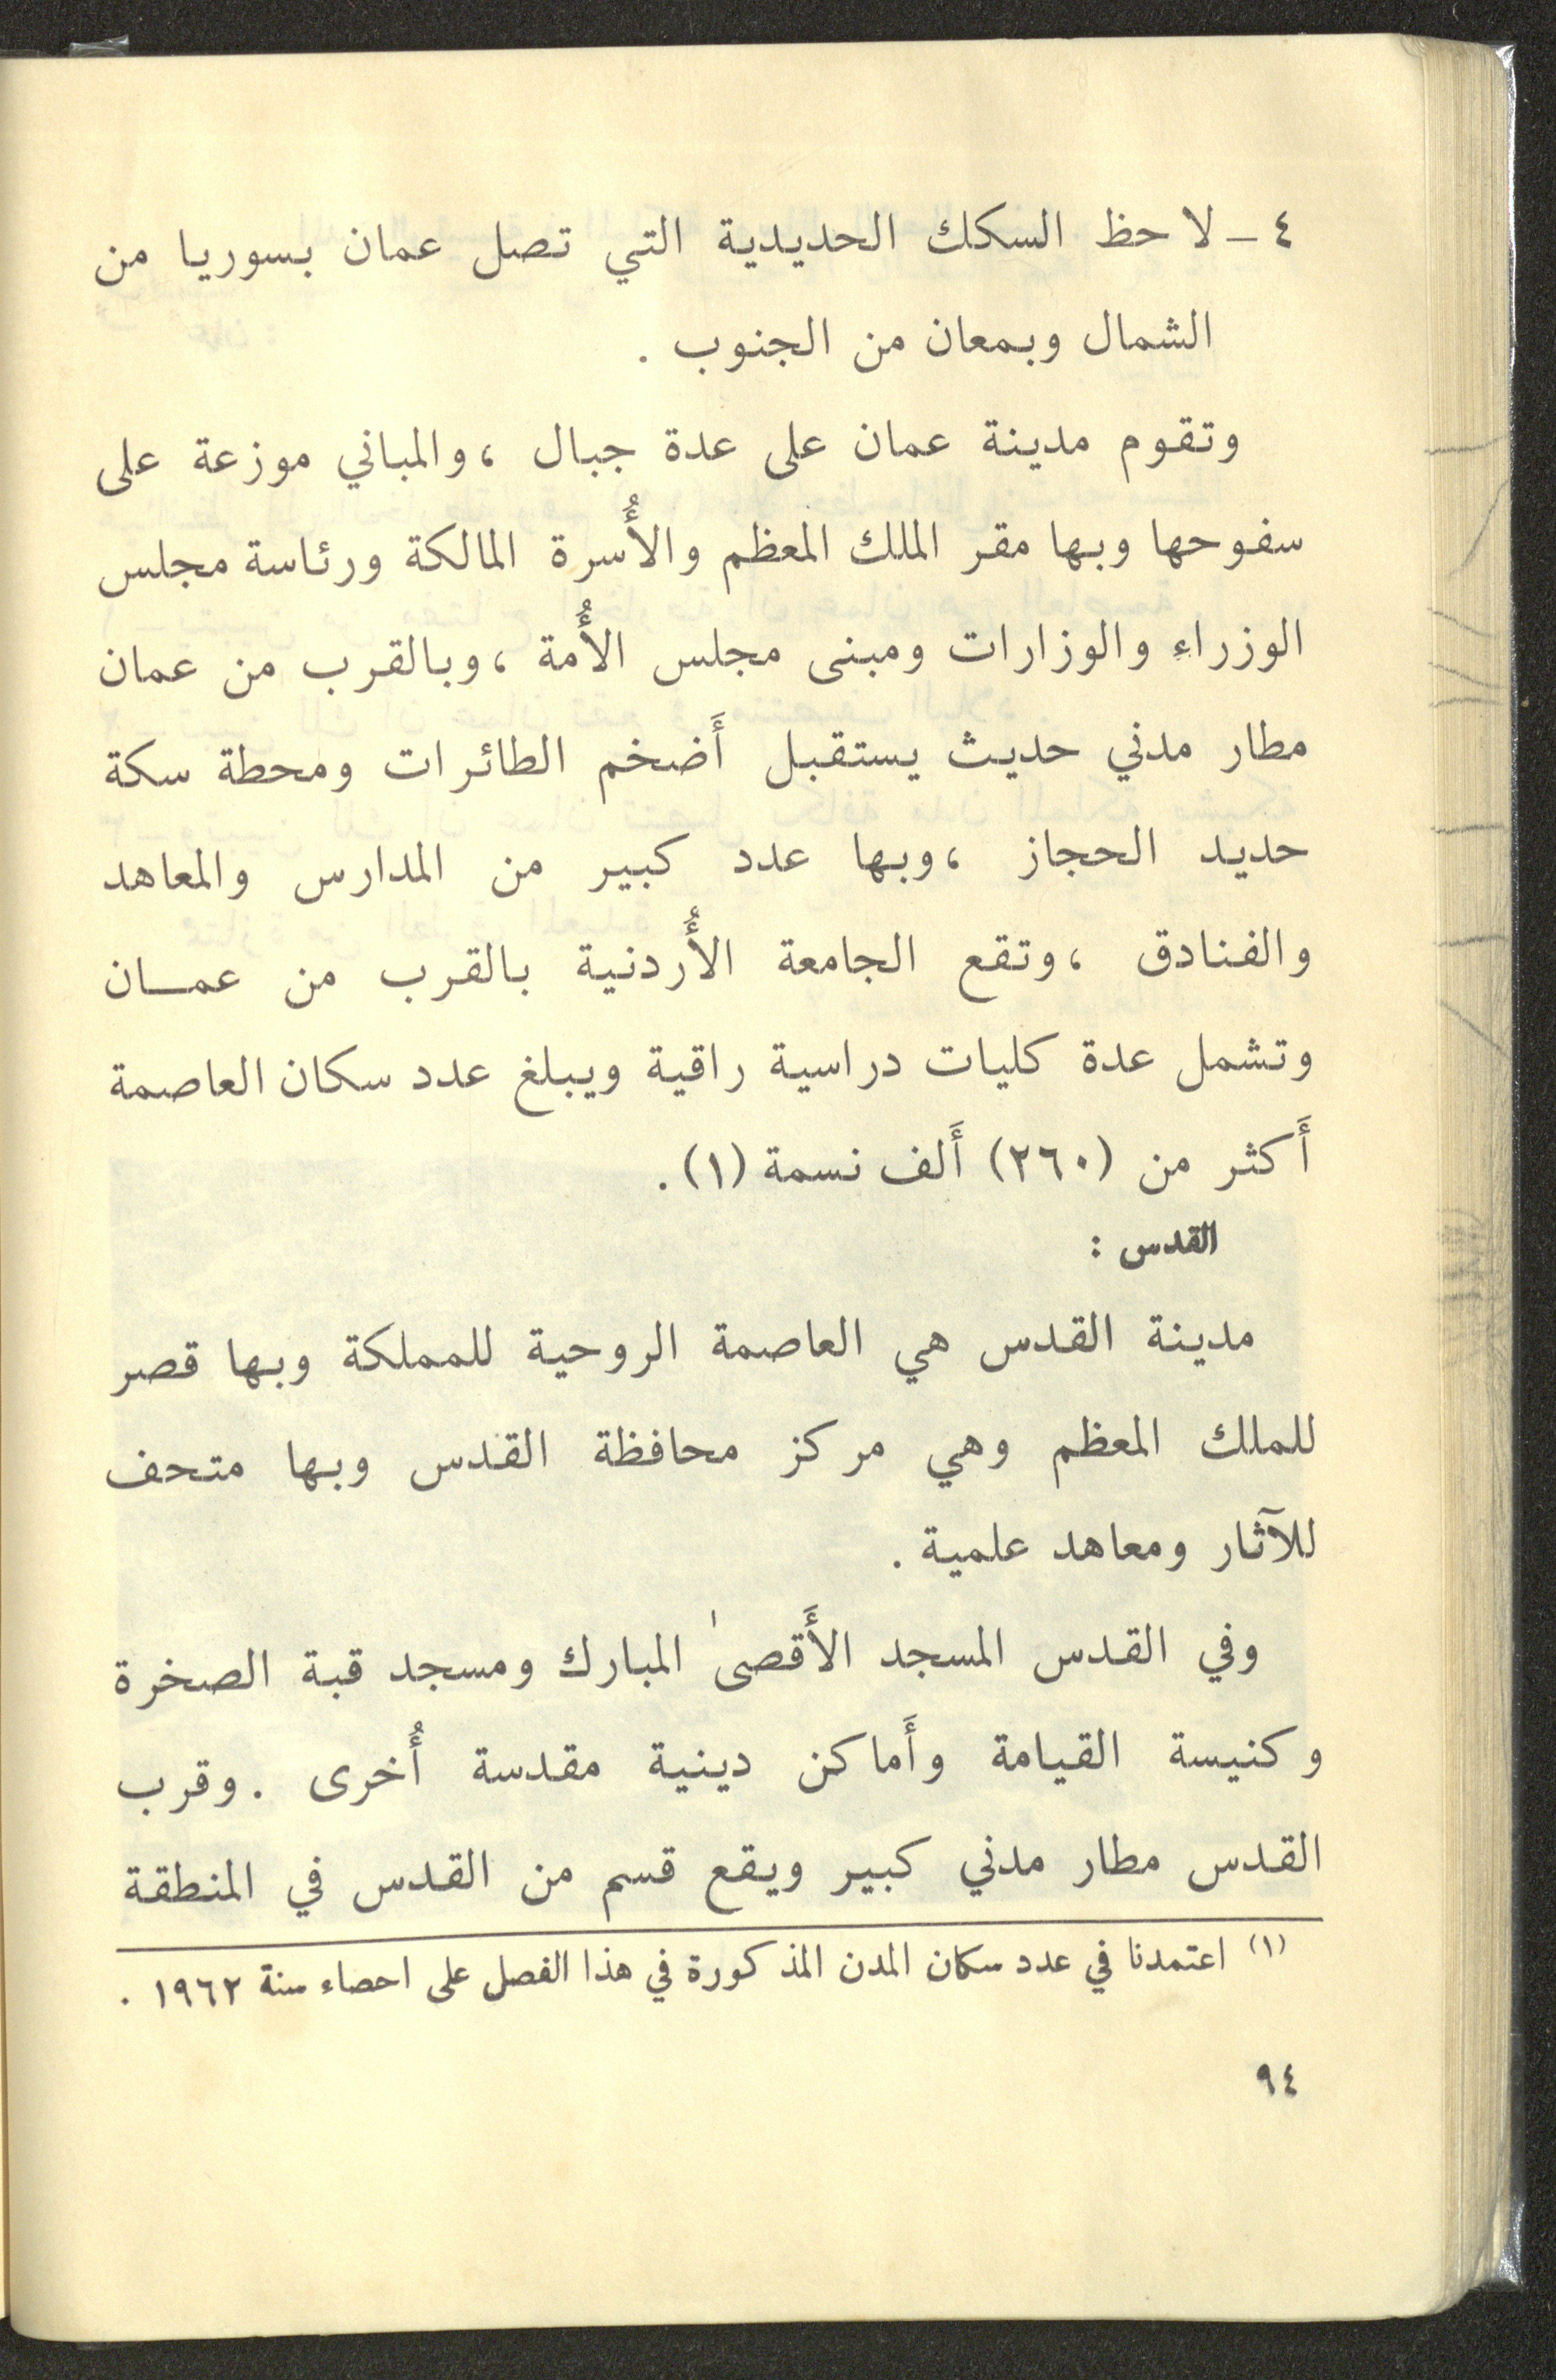 ٤ - لاحظ السكك الحديدية التي تصل عمان بسوريا من
الشمال وبمعان من الجنوب .
وتقوم مدينة عمان على عدة جبال ، والمباني موزعة على
سفوحها وبها مقر الملك المعظم والأُسرة المالكة ورئاسة مجلس
الوزراءِ والوزارات ومبنى مجلس الأُمة ، وبالقرب من عمان
مطار مدني حديث يستقبل أَضخم الطائرات ومحطة سكة
حديد الحجاز ، وبها عدد كبير من المدارس والمعاهد
والفنادق ، وتقع الجامعة الأُردنية بالقرب من عمـــان
وتشمل عدة كليات دراسية راقية ويبلغ عدد سكان العاصمة
أَكثر من (٢٦٠) أَلف نسمة (١) .
القدس :
مدينة القدس هي العاصمة الروحية للمملكة وبها قصر
للملك المعظم وهي مركز محافظة القدس وبها متحف
للآثار ومعاهد علمية .
وفي القدس المسجد الأَقصىٰ المبارك ومسجد قبة الصخرة
وكنيسة القيامة وأَماكن دينية مقدسة أُخرى . وقرب
القدس مطار مدني كبير ويقع قسم من القدس في المنطقة
(١) اعتمدنا في عدد سكان المدن المذكورة في هذا الفصل على احصاء سنة ١٩٦٢ .
٩٤